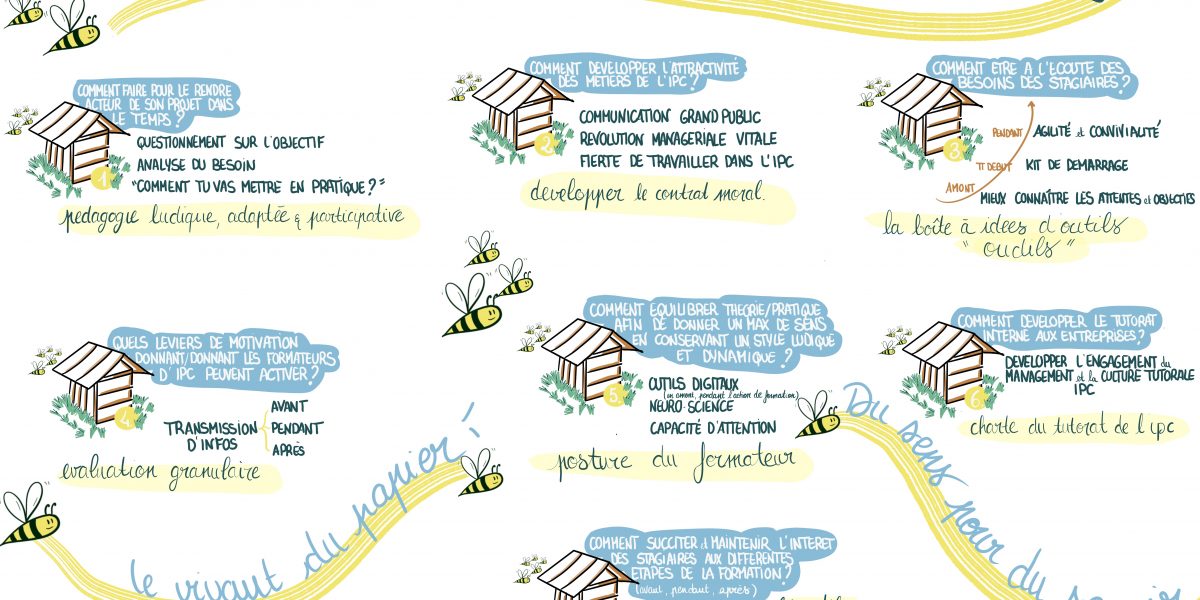 COMMENT FAIRE POUR LE RENDRE
ACTEUR DE SON PROJET DANS
LE TEMPS ?
1
QUESTIONNEMENT SUR L'OBJECTIF
ANALYSE DU BESOIN
"COMMENT TU VAS METTRE EN PRATIQUE ?"
pedagogie ludique, adaptée & participative
COMMENT DEVELOPPER L'ATTRACTIVITÉ
DES METIERS DE L'IPC ?
2
COMMUNICATION GRAND PUBLIC
REVOLUTION MANAGERIALE VITALE
FIERTE DE TRAVAILLER DANS L'IPC
developper le contrat moral.
COMMENT ETRE A L'ECOUTE DES
BESOINS DES STAGIAIRES ?
3
PENDANT AGILITÉ et CONVIVIALITÉ
TT DEBUT KIT DE DEMARRAGE
AMONT MIEUX CONNAÎTRE LES ATTENTES et OBJECTIFS
la boîte à idees d'outils
"oudils"
QUELS LEVIERS DE MOTIVATION
DONNANT/DONNANT LES FORMATEURS
D'IPC PEUVENT ACTIVER ?
4
TRANSMISSION
D'INFOS
AVANT
PENDANT
APRÈS
evaluation granulaire
COMMENT EQUILIBRER THEORIE/PRATIQUE
AFIN DE DONNER UN MAX DE SENS
EN CONSERVANT UN STYLE LUDIQUE
ET DYNAMIQUE ?
5.
OUTILS DIGITAUX
(en amont, pendant l'action de formation)
NEURO SCIENCE
CAPACITÉ D'ATTENTION
posture du formateur
COMMENT DEVELOPPER LE TUTORAT
INTERNE AUX ENTREPRISES ?
6
DEVELOPPER L'ENGAGEMENT du
MANAGEMENT et la CULTURE TUTORALE
IPC
charte du tutorat de l'ipc
le vivant du papier !
Du sens pour du
COMMENT SUCCITER et MAINTENIR L'INTERET
DES STAGIAIRES AUX DIFFERENTES
ETAPES DE LA FORMATION ?
(avant, pendant, après)